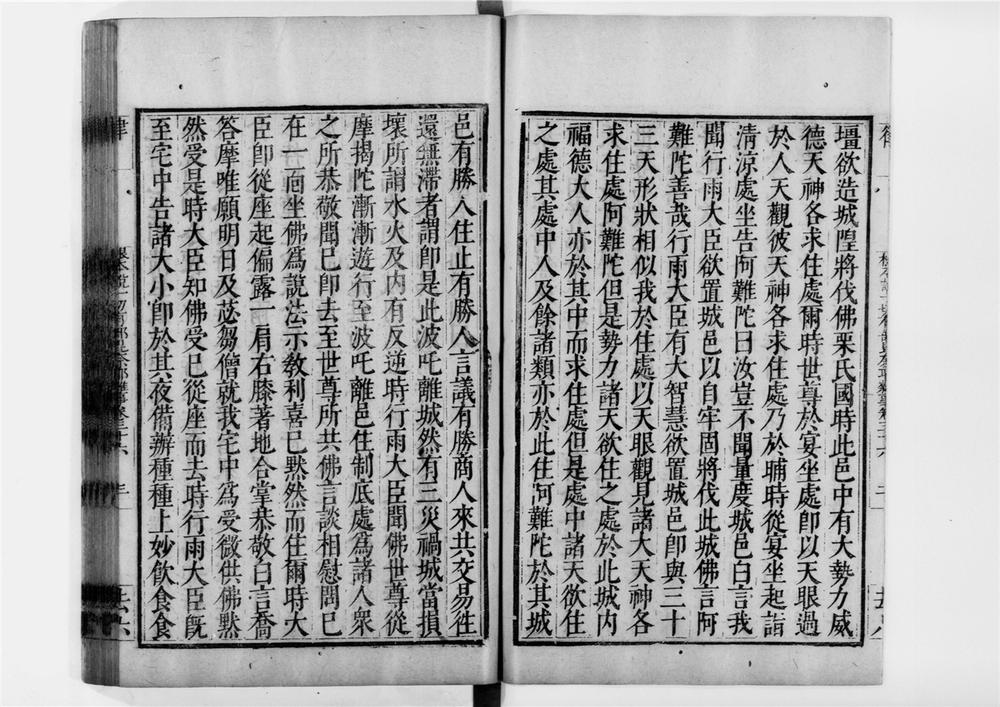 壃欲造城隍將伐佛栗氏國時此邑中有大勢力威
德天神各求住處爾時世尊於宴坐處卽以天眼過
於人天觀彼天神各求住處乃於晡時從宴坐起詣
清涼處坐告阿難陀曰汝豈不聞量度城邑白言我
聞行雨大臣欲置城邑以自牢固將伐此城佛言阿
難陀善哉行雨大臣有大智慧欲置城邑卽與三十
三天形狀相似我於住處以天眼觀見諸大天神各
求住處阿難陀但是勢力諸天欲住之處於此城内
福德大人亦於其中而求住處但是處中諸天欲住
之處其處中人及餘諸類亦於此住阿難陀於其城
邑有勝人住止有勝人言議有勝商人來共交易徃
還無滯者謂卽是此波吒離城然有三災禍城當損
壞所謂水火及内有反逆時行雨大臣聞佛世尊從
摩揭陀漸漸遊行至波吒離邑住制底處爲諸人衆
之所恭敬聞已卽去至世尊所共佛言談相慰問已
在一面坐佛爲說法示教利喜已黙然而住爾時大
臣卽從座起偏露一肩右膝著地合掌恭敬白言喬
答摩唯願明日及苾芻僧就我宅中爲受微供佛黙
然受是時大臣知佛受已從座而去時行雨大臣旣
至宅中告諸大小卽於其夜備辦種種上妙飮食食
律